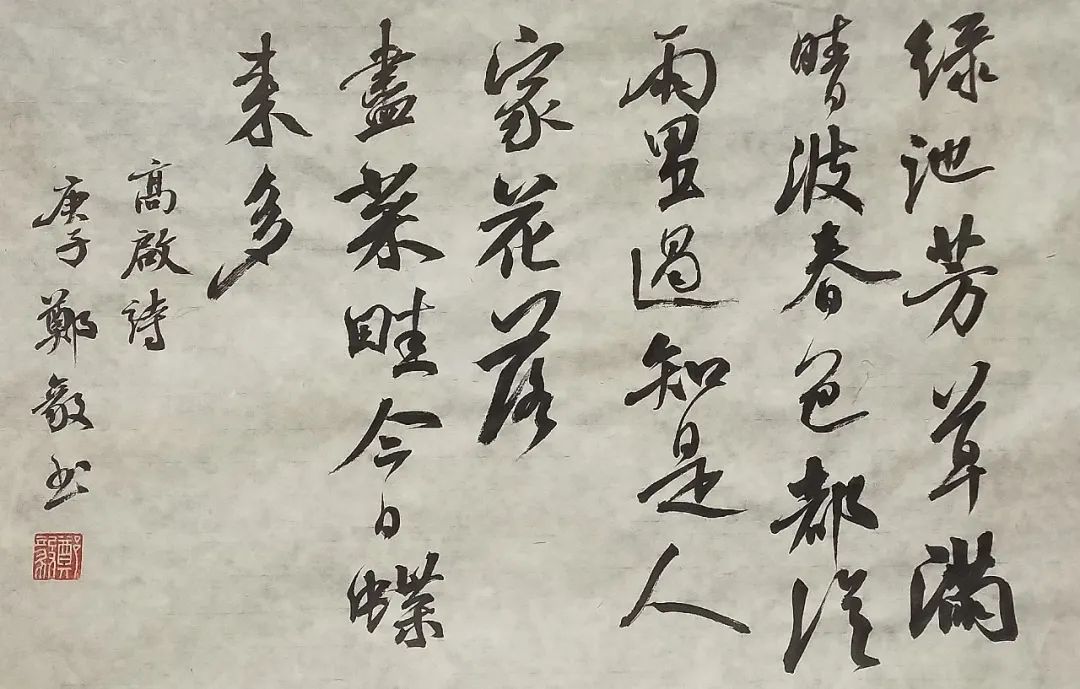 绿池芳草满
晴波春色都從
雨里過知是人
家花落
盡菜畦今日蝶
来多
高啟詩
庚子鄭毅书
鄭毅